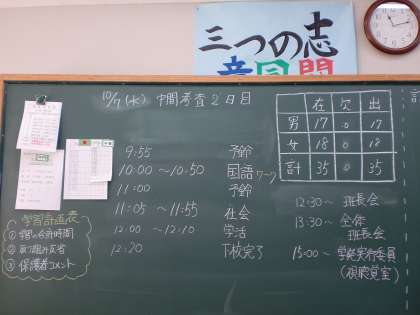 三つの志
10/7(水) 中間考査2日目
9:55 予鈴
10:00 ～10:50 国語 ワーク
11:00 予鈴
11:05 ～11:55 社会
12:00 ～12:10 学活
12:20 下校完了
在 欠 出
男 17 0 17
女 18 0 18
計 35 0 35
12:30～ 班長会
13:30～ 全体
班長会
15:00～ 学発実行委員
(視聴覚室)
学習計画表
①
②
③ 保護者コメント